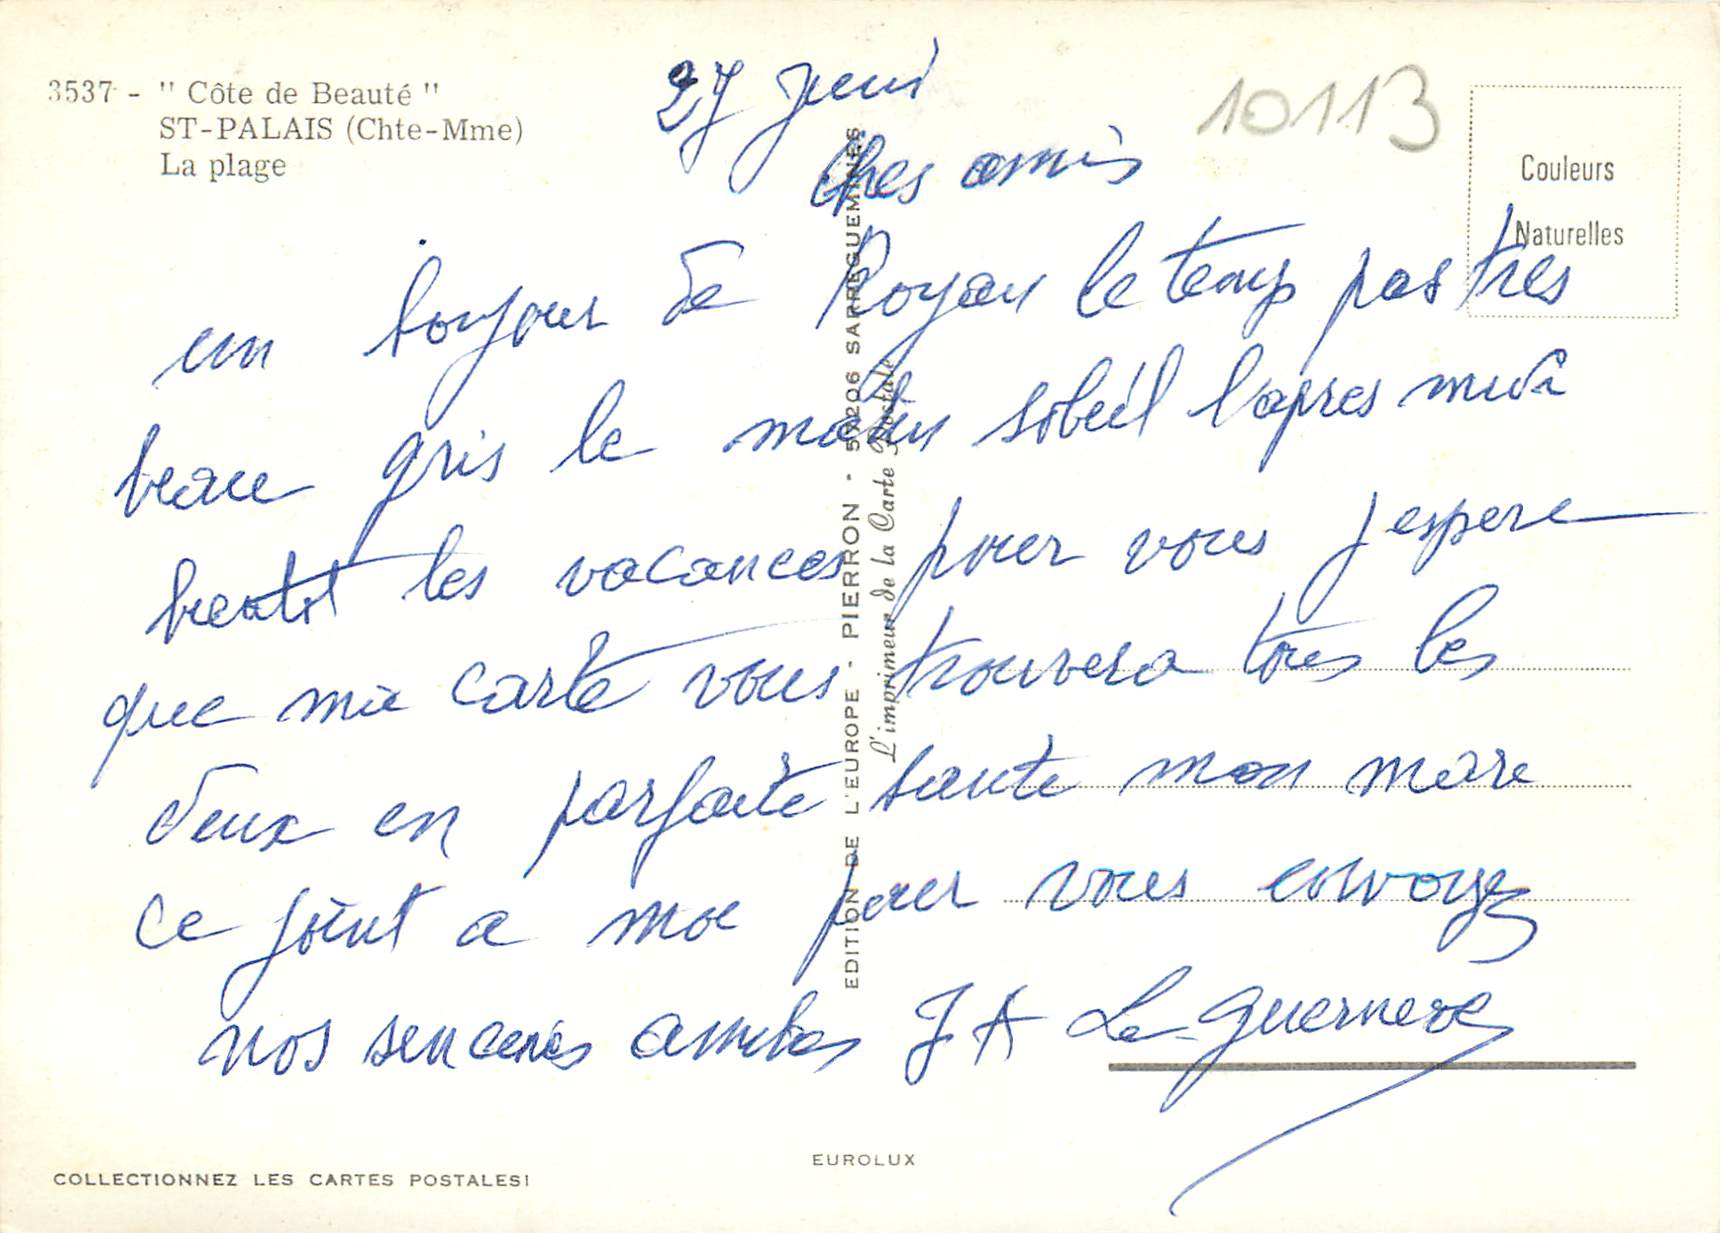 3537 - " Côte de Beauté "
ST-PALAIS (Chte-Mme)
La plage
27 Juin
10113
Couleurs
Naturelles
Ches amis
un bonjour de Royan le temp pas tres
beau gris le matin soleil l'apres midi
bientot les vacances pour vous j espere
que ma carte vous trouvera tous les
deux en parfaite sante mon mare
ce joint a moi pour vous envoyez
nos senceres amities J A Le
EDITION DE L'EUROPE - PIERRON - 57206 SARREGUEMINES
L'imprimeur de la Carte Postale
EUROLUX
COLLECTIONNEZ LES CARTES POSTALES!